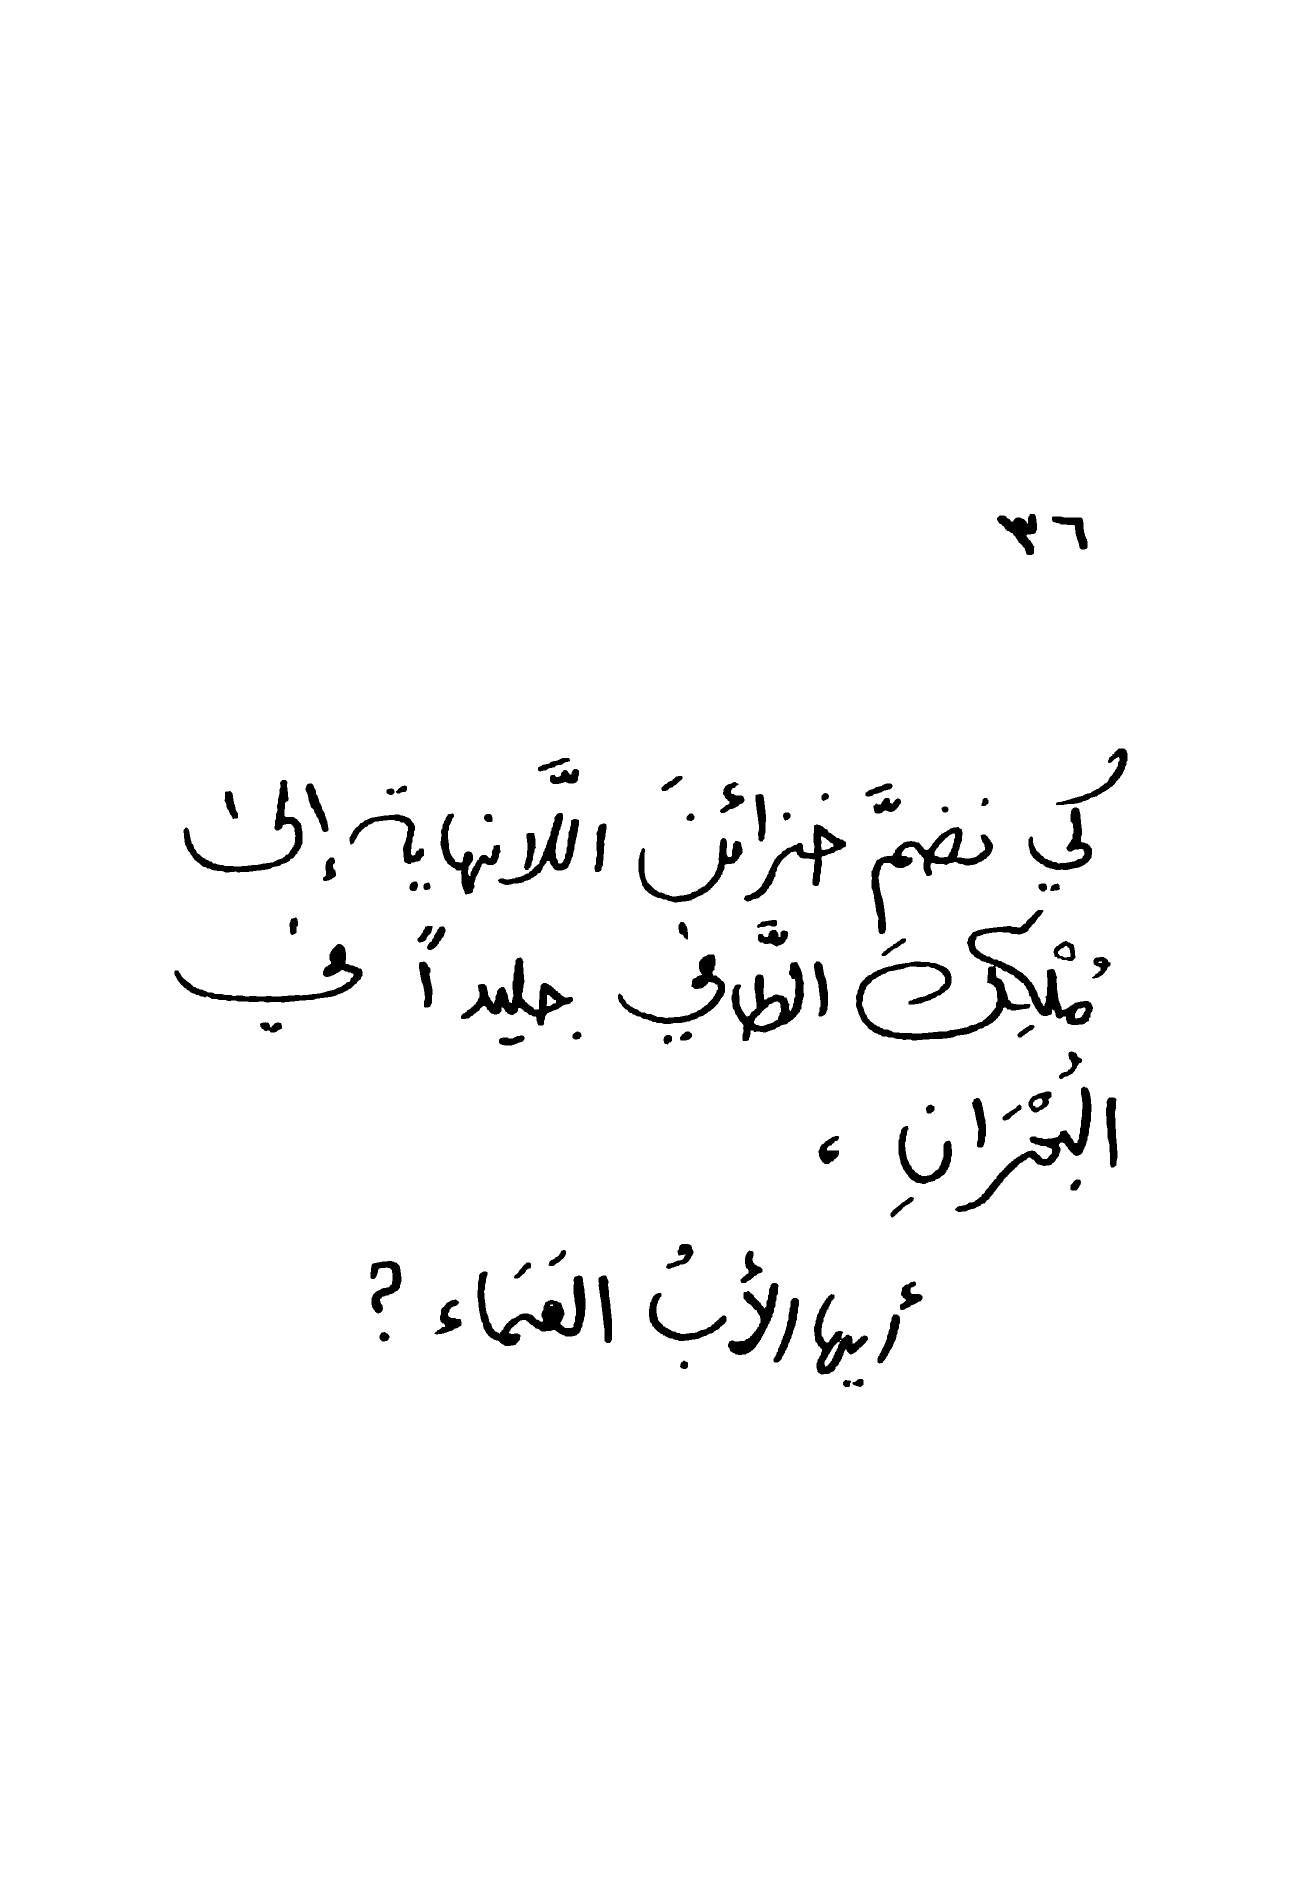 ٣٦
كي نضمَّ خزائنَ اللَّانهاية إلى
مُلْكِكَ الطَّافي جليداً في
البُحْرَانِ ،
أيها الأبُ العَمَاء ?